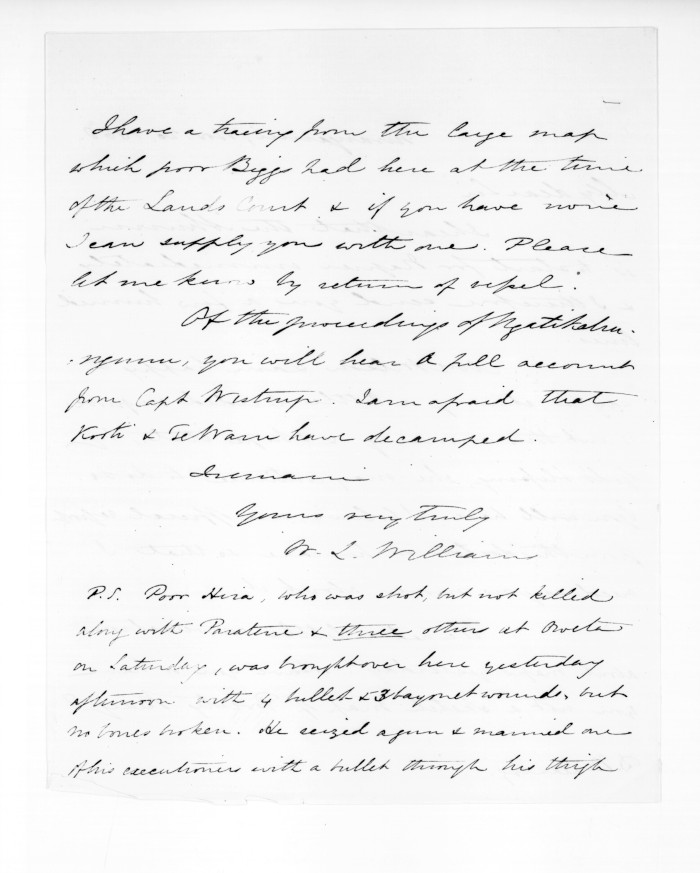 I have a tracing from the large map
which poor Biggs had here at the time
of the Lands Court & if you have none
I can supply you with one. Please
let me know by return of vessel.
Of the proceedings of Ngatikahu-
-ngunu, you will hear a full account
from Capt Westrup. I am afraid that
Kooti & Te Waru have decamped.
I remain
Yours very truly
W. L. Williams
P.S. Poor Hira, who was shot, but not killed
along with Paratene & three others at Oweta
on Saturday, was brought over here yesterday
afternoon with 4 bullet & 3 bayonet wounds, but
no bones broken. He seized a gun & marked one
of his executioners with a bullet through his thigh